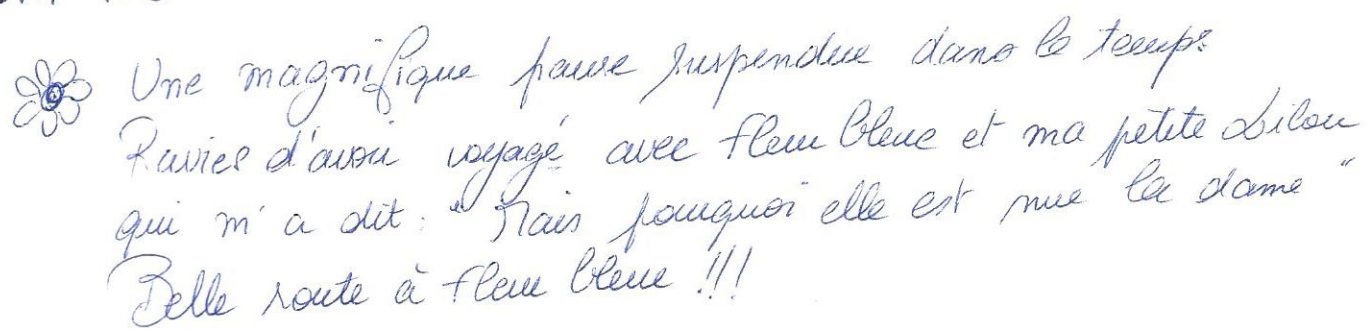 Une magnifique pause suspendue dans le temps
Ravies d'avoir voyagé avec fleur bleue et ma petite Lilou
qui m'a dit : "Mais pourquoi elle est nue la dame"
Belle route à fleur bleue !!!